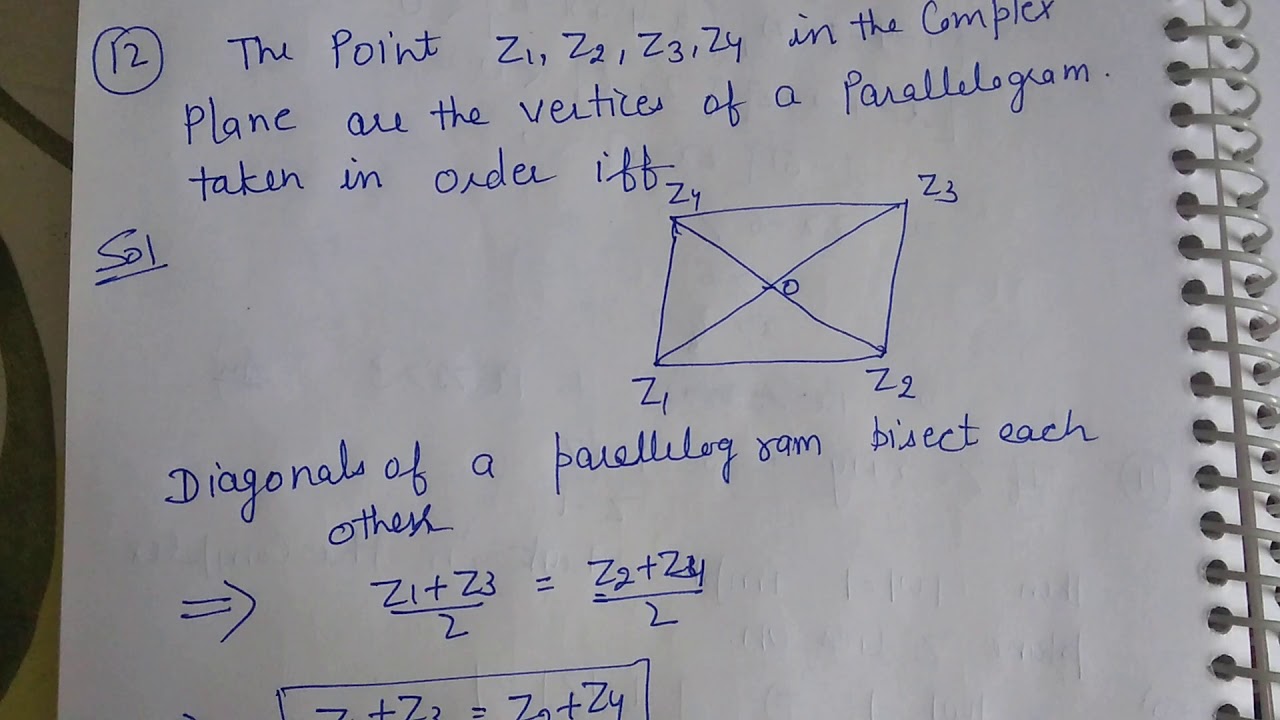 12 The Point Z1, Z2, Z3, Z4 in the Complex
Plane are the vertices of a Parallelogram.
taken in order iff
Z4 Z3
Sol
O
Z1 Z2
Diagonals of a parellelogram bisect each
other
=> Z1+Z3/2 = Z2+Z4/2
Z1+Z3 = Z2+Z4